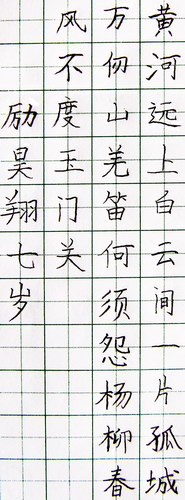 黄河远上白云间一片孤城
万仞山羌笛何须怨杨柳春
风不度玉门关
励昊翔七岁